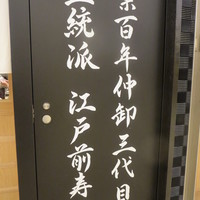 業百年仲卸三代目
正統派 江戸前寿